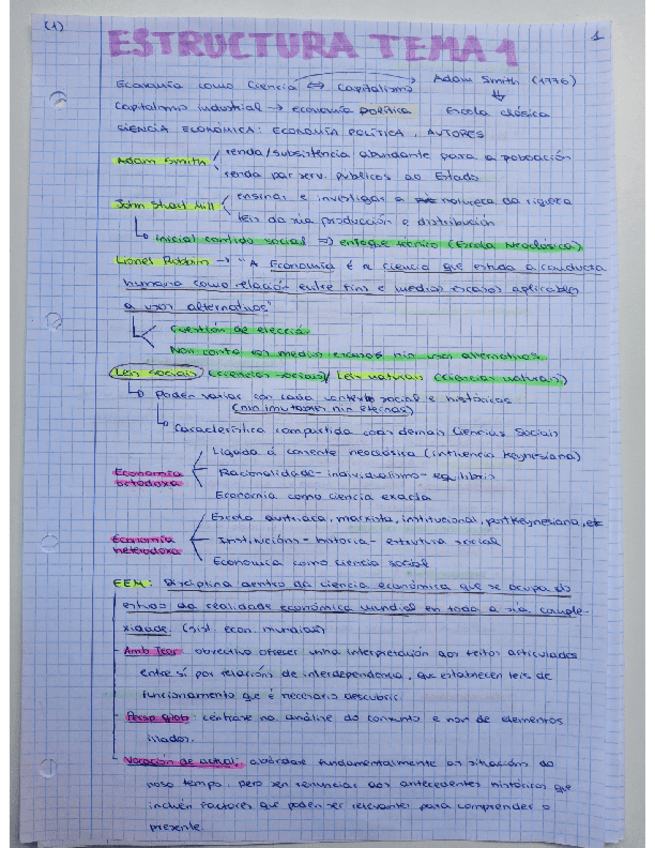 (1)
1
ESTRUCTURA TEMA 1
Economía como Ciencia ⇔ Capitalismo → Adam Smith (1776)
Capitalismo industrial → economía política
Escola clásica
CIENCIA ECONÓMICA: ECONOMÍA POLÍTICA, AUTORES
Adam Smith
renda/subsistencia abundante para a poboación
renda par serv. públicos ao Estado
John Stuart Mill
ensinar e investigar a natureza da riqueza
leis da súa producción e distribución
inicial contido social ⇒ enfoque técnico (Escola Neoclásica)
Lionel Robbin → "A Economía é a ciencia que estuda a conducta
humana como relación entre fins e medios escasos aplicables
a usos alternativos"
Cuestión de elección
Non conta con medios escasos nin usos alternativos
Leis sociais (ciencias sociais) / Leis naturais (ciencias naturais)
Poden variar con cada contexto social e históricos
(nin inmutables nin eternas)
Característica compartida coas demais Ciencias Sociais
Economía
ortodoxa
Ligada á corrente neoclásica (influencia Keynesiana)
Racionalidade - individualismo - equilibrio
Economía como ciencia exacta
Economía
heterodoxa
Escola austriaca, marxista, institucional, postkeynesiana, etc
Institucións - historia - estrutura social
Economía como ciencia social
EEM: Disciplina dentro da ciencia económica que se ocupa do
estudo da realidade económica mundial en toda a súa comple-
xidade. (sist. econ. mundial)
- Amb Teor: obxectivo ofrecer unha interpretación aos feitos articulados
entre sí por relacións de interdependencia, que establecen leis de
funcionamento que é necesario descubrir.
- Persp glob: céntrase no análise do conxunto e non de elementos
illados.
- Vocación de actual: abórdase fundamentalmente as situacións do
noso tempo, pero sen renunciar aos antecedentes históricos que
inclúen factores que poden ser relevantes para comprender o
presente.